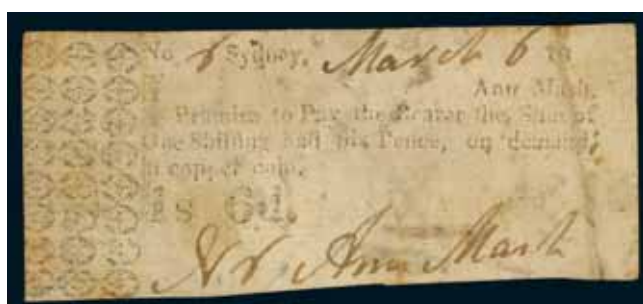 No. 8 Sydney, March 6 18
Ann Mash,
Promise to Pay the Bearer the Sum of
One Shilling and Six Pence, on demand,
in copper coin.
S 6d.
No 8 Ann Mash